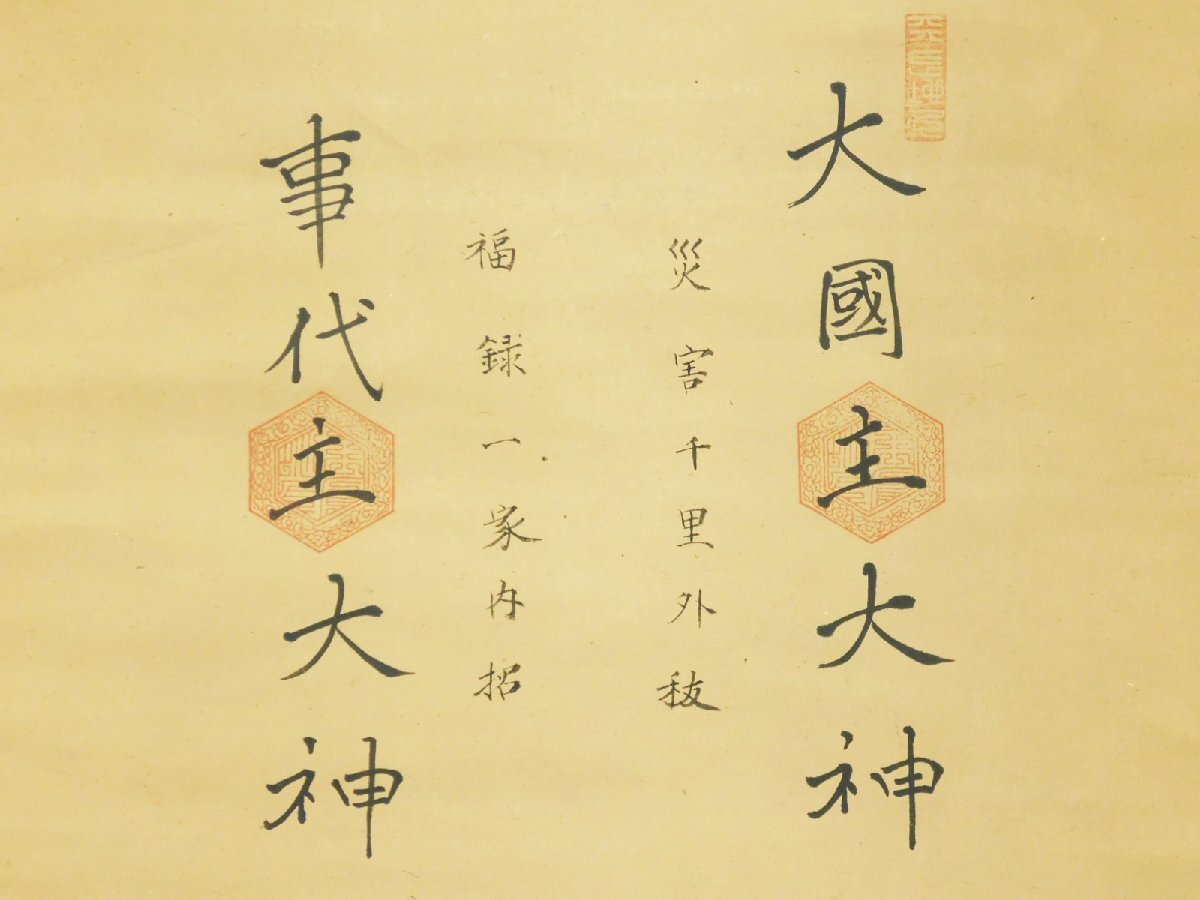 大國主大神
災害千里外秡
福録一家内招
事代主大神